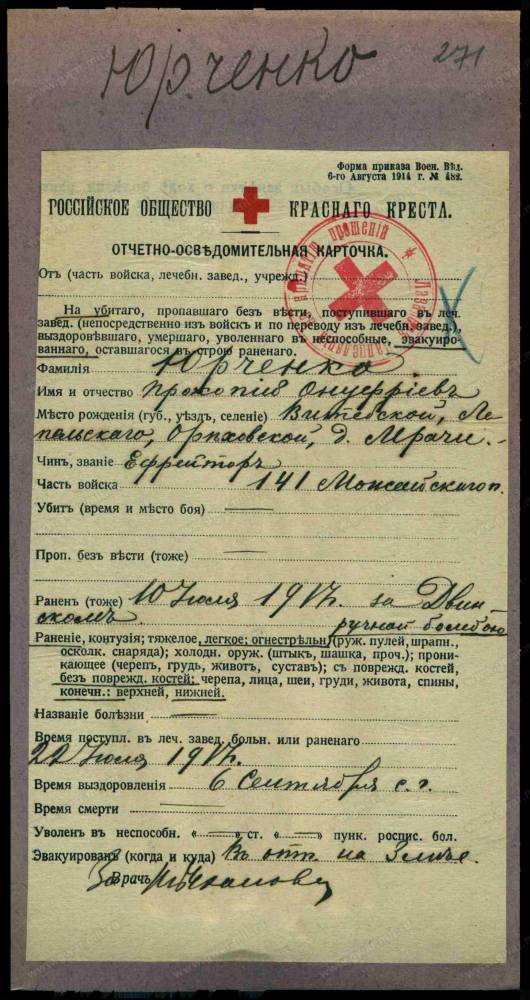 Юрченко
271
Форма приказа Воен. Вѣд.
6-го Августа 1914 г. № 482.
РОССІЙСКОЕ ОБЩЕСТВО КРАСНАГО КРЕСТА.
ОТЧЕТНО-ОСВѢДОМИТЕЛЬНАЯ КАРТОЧКА.
Отъ (часть войска, лечебн. завед., учрежд.)
На убитаго, пропавшаго безъ вѣсти, поступившаго въ леч.
завед. (непосредственно изъ войскъ и по переводу изъ лечебн. завед.),
выздоровѣвшаго, умершаго, уволеннаго въ неспособные, эвакуиро-
ваннаго, оставшагося въ строю раненаго.
Фамилія Юрченко
Имя и отчество Прокопій Онуфріевъ
Мѣсто рожденія (губ., уѣздъ, селеніе) Витебской, Ле-
пельскаго, Орѣховской, д. Мрачи.
Чинъ, званіе Ефрейторъ
Часть войска 141 Можайскаго п.
Убитъ (время и мѣсто боя)
Проп. безъ вѣсти (тоже)
Раненъ (тоже) 10 Іюля 1917г. за Двин-
скомъ ручной бомбою
Раненіе, контузія; тяжелое, легкое; огнестрѣльн. (руж. пулей, шрапн.,
осколк. снаряда); холодн. оруж. (штыкъ, шашка, проч.); прони-
кающее (черепъ, грудь, животъ, суставъ); съ поврежд. костей,
безъ поврежд. костей; черепа, лица, шеи, груди, живота, спины,
конечн.: верхней, нижней.
Названіе болѣзни
Время поступл. въ леч. завед. больн. или раненаго
22 Іюля 1917г.
Время выздоровленія 6 Сентября с. г.
Время смерти
Уволенъ въ неспособн. « » ст. « » пунк. роспис. бол.
Эвакуированъ (когда и куда) Въ отп. на
За Врачъ